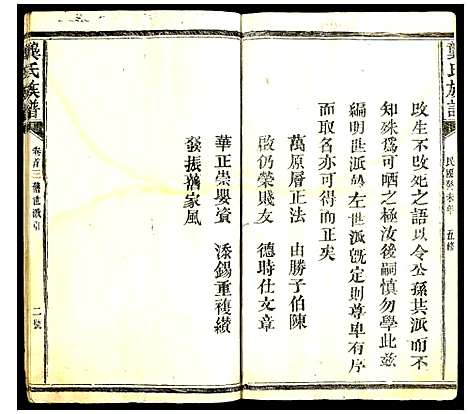 龔氏族譜
民國癸未年 五修
改生不改死之語以令公孫其派而不
知殊爲可哂之極汝後嗣慎勿學此茲
編明世派於左世派旣定則尊卑有序
而取名亦可得而正矣
萬原層正法 由勝子伯陳
啟仍榮賤友 德時仕文章
華正崇嬰賓 添錫重複纘
發振舊家風
龔氏族譜
卷首三 舊世派引
二號